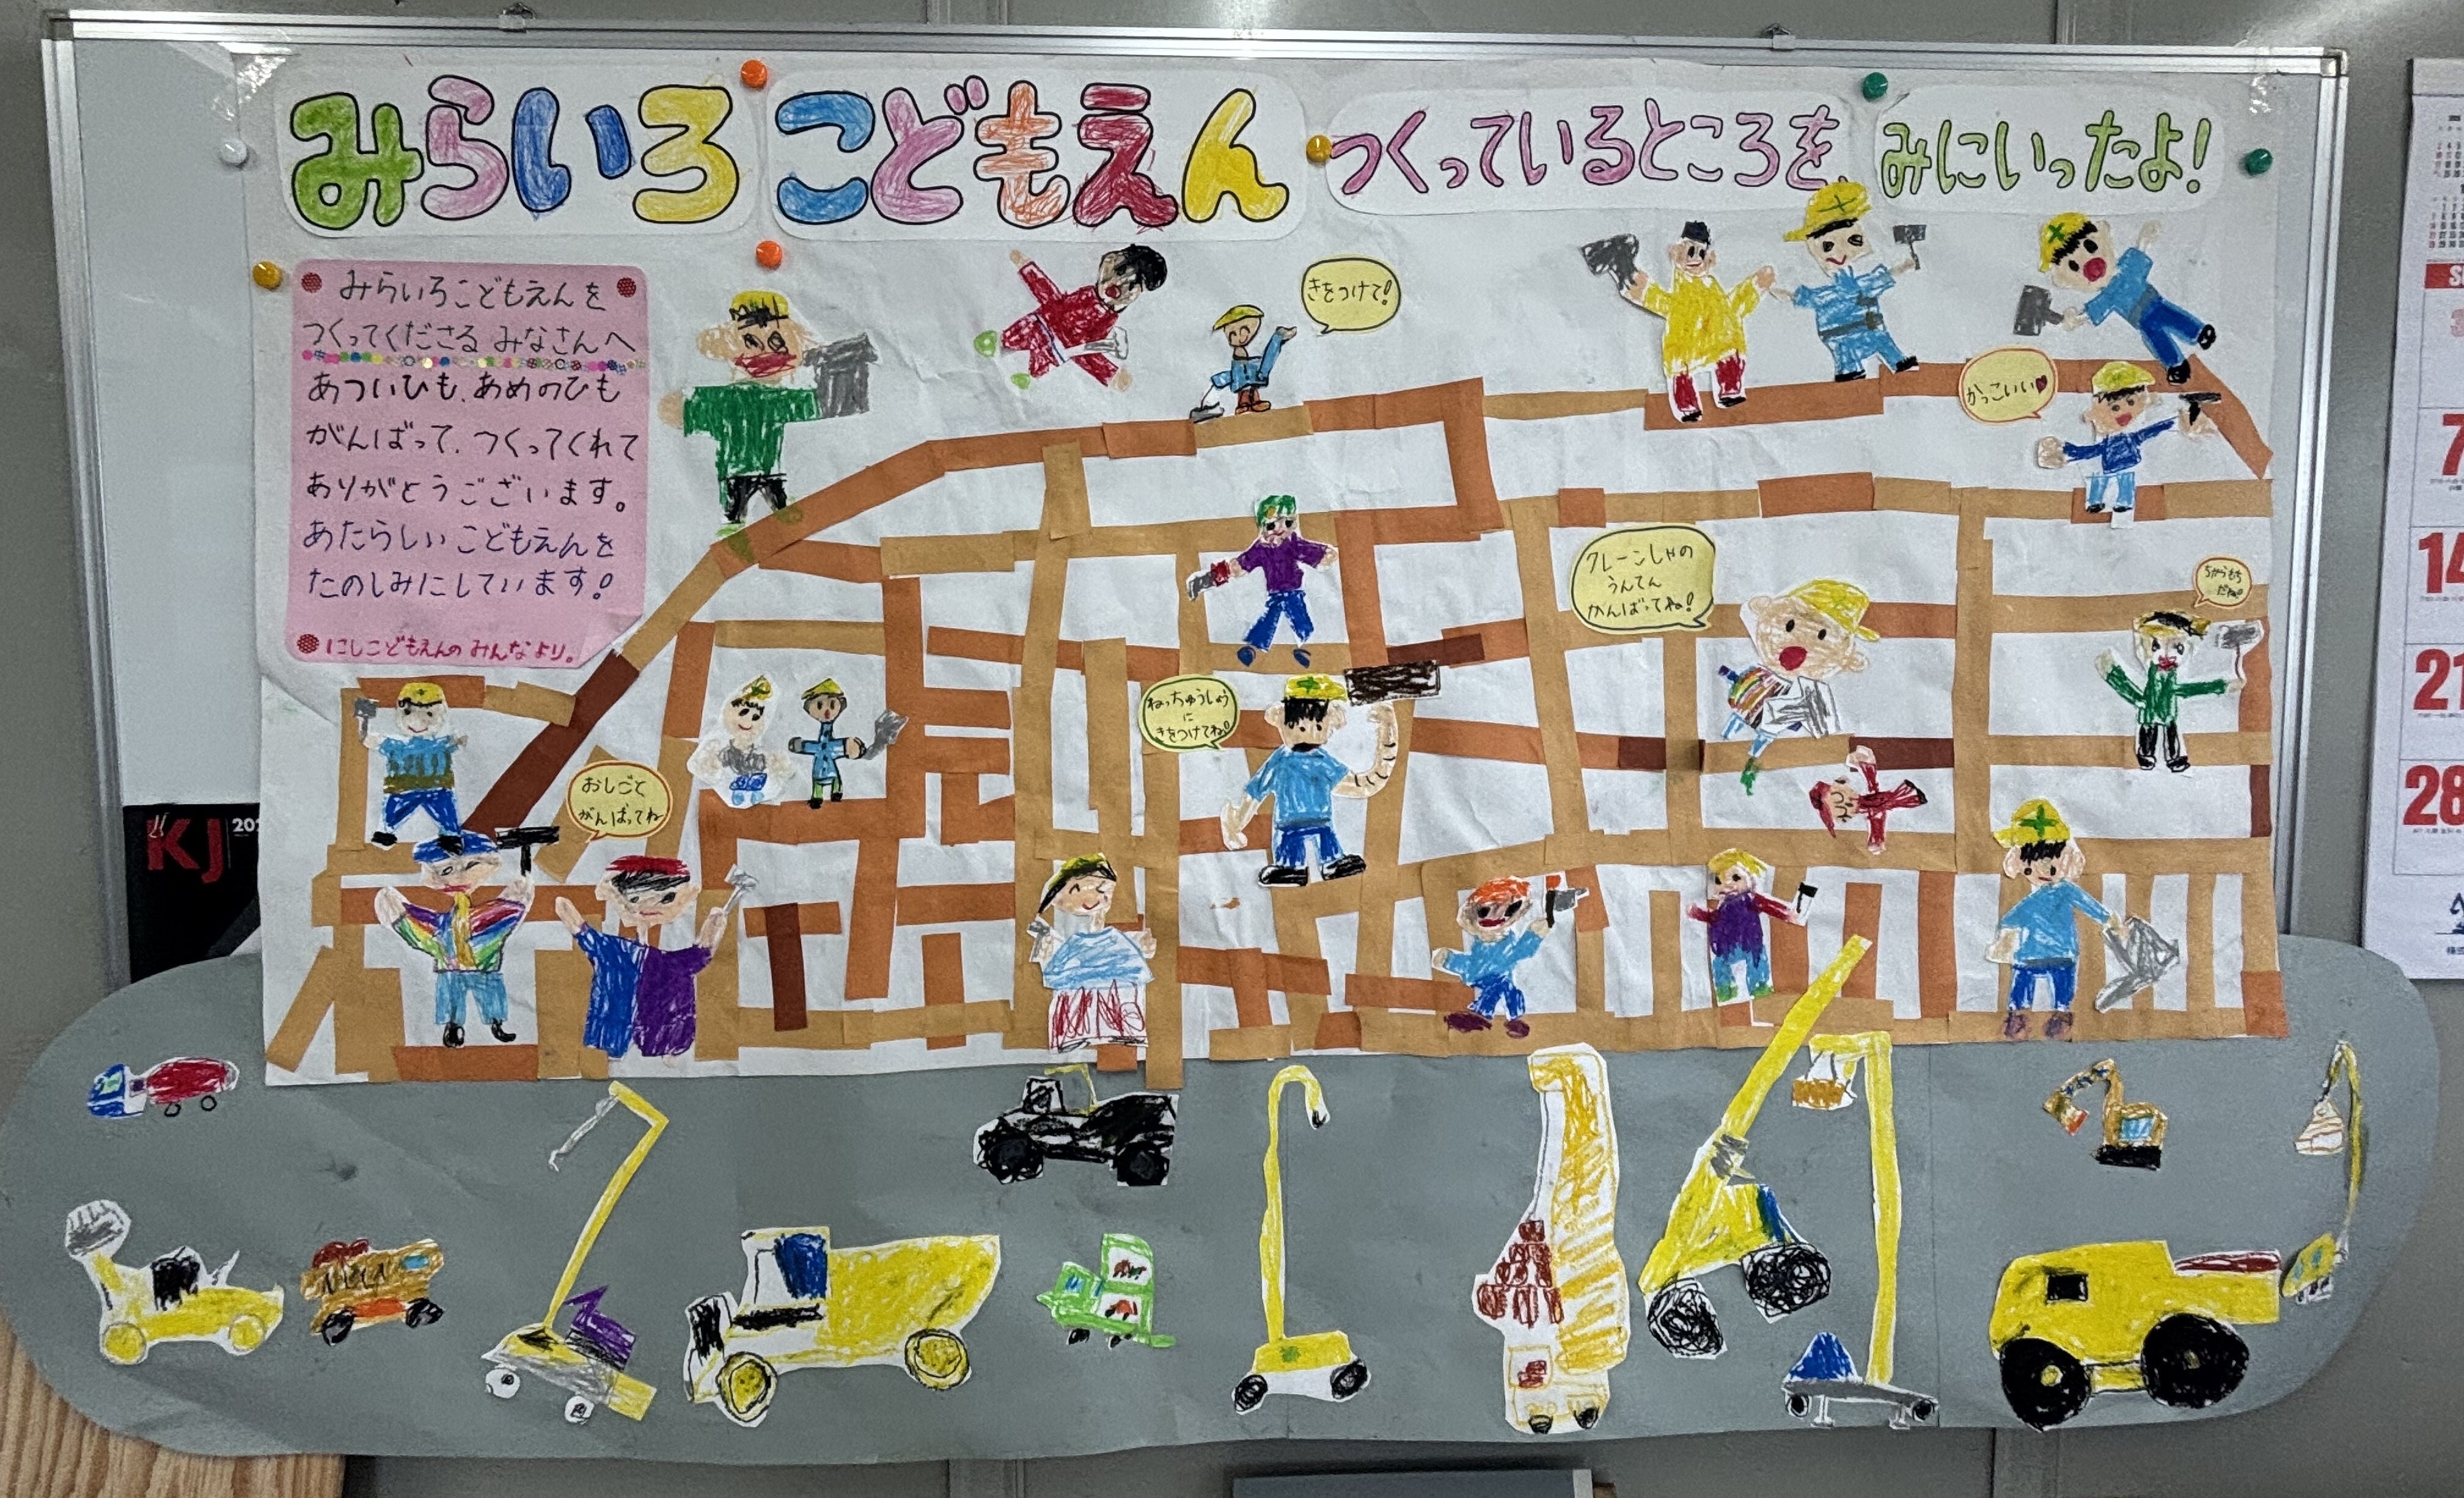 みらいろ こどもえん つくっているところを、みにいったよ!
みらいろこどもえんを
つくってくださる みなさんへ
あついひも、あめのひも
がんばって、つくってくれて
ありがとうございます。
あたらしい こどもえんを
たのしみにしています!
にしこどもえんの みんなより。
きをつけて!
かっこいい♥
クレーンしゃの
うんてん
がんばってね!
ちからもち
だね!
ねっちゅうしょう
に
きをつけてね!
おしごと
がんばってね
KJ
7
14
21
28